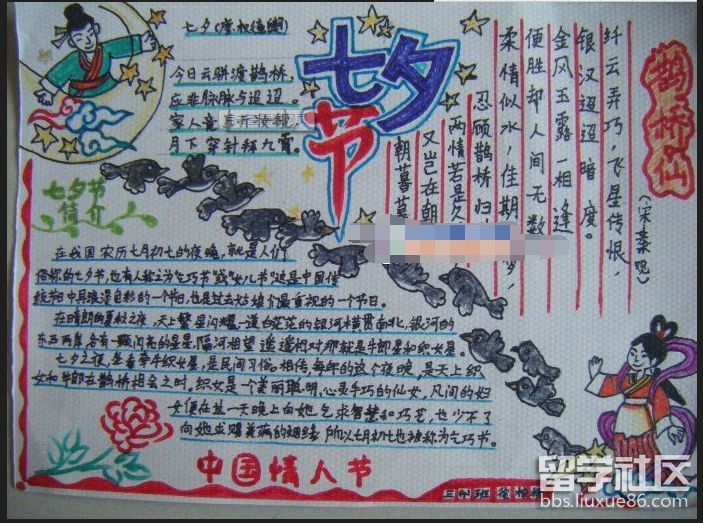 七夕节
七夕(唐·权德舆)
今日云骈渡鹊桥，
应非脉脉与迢迢。
家人竞喜开妆镜，
月下穿针拜九霄。
鹊桥仙
(宋秦观)
纤云弄巧，飞星传恨，
银汉迢迢暗度。
金风玉露一相逢
便胜却人间无数
柔情似水，佳期
梦，
忍顾鹊桥归
两情若是久
又岂在朝
朝暮暮
七夕节
简介
在我国农历七月初七的夜晚，就是人们
俗称的七夕节，也有人称之为"乞巧节"或"女儿节"这是中国传
统节日中最浪漫色彩的一个节日，也是过去姑娘们最重视的一个节日。
在晴朗的夏秋之夜，天上繁星闪耀一道白茫茫的银河横贯南北，银河的
东西两岸，各有一颗闪亮的星星，隔河相望 遥遥相对那就是牛郎星和织女星。
七夕之夜，坐看牵牛织女星，是民间习俗。相传，每年的这个夜晚，是天上织
女和牛郎在鹊桥相会之时。织女是一个美丽聪明，心灵手巧的仙女，凡间的妇
女便在这一天晚上向她乞求智慧和巧艺，也少不了
向她求赐美满的姻缘 所以七月初七也被称为乞巧节。
中国情人节
留学社区
bbs.liuxue86.com